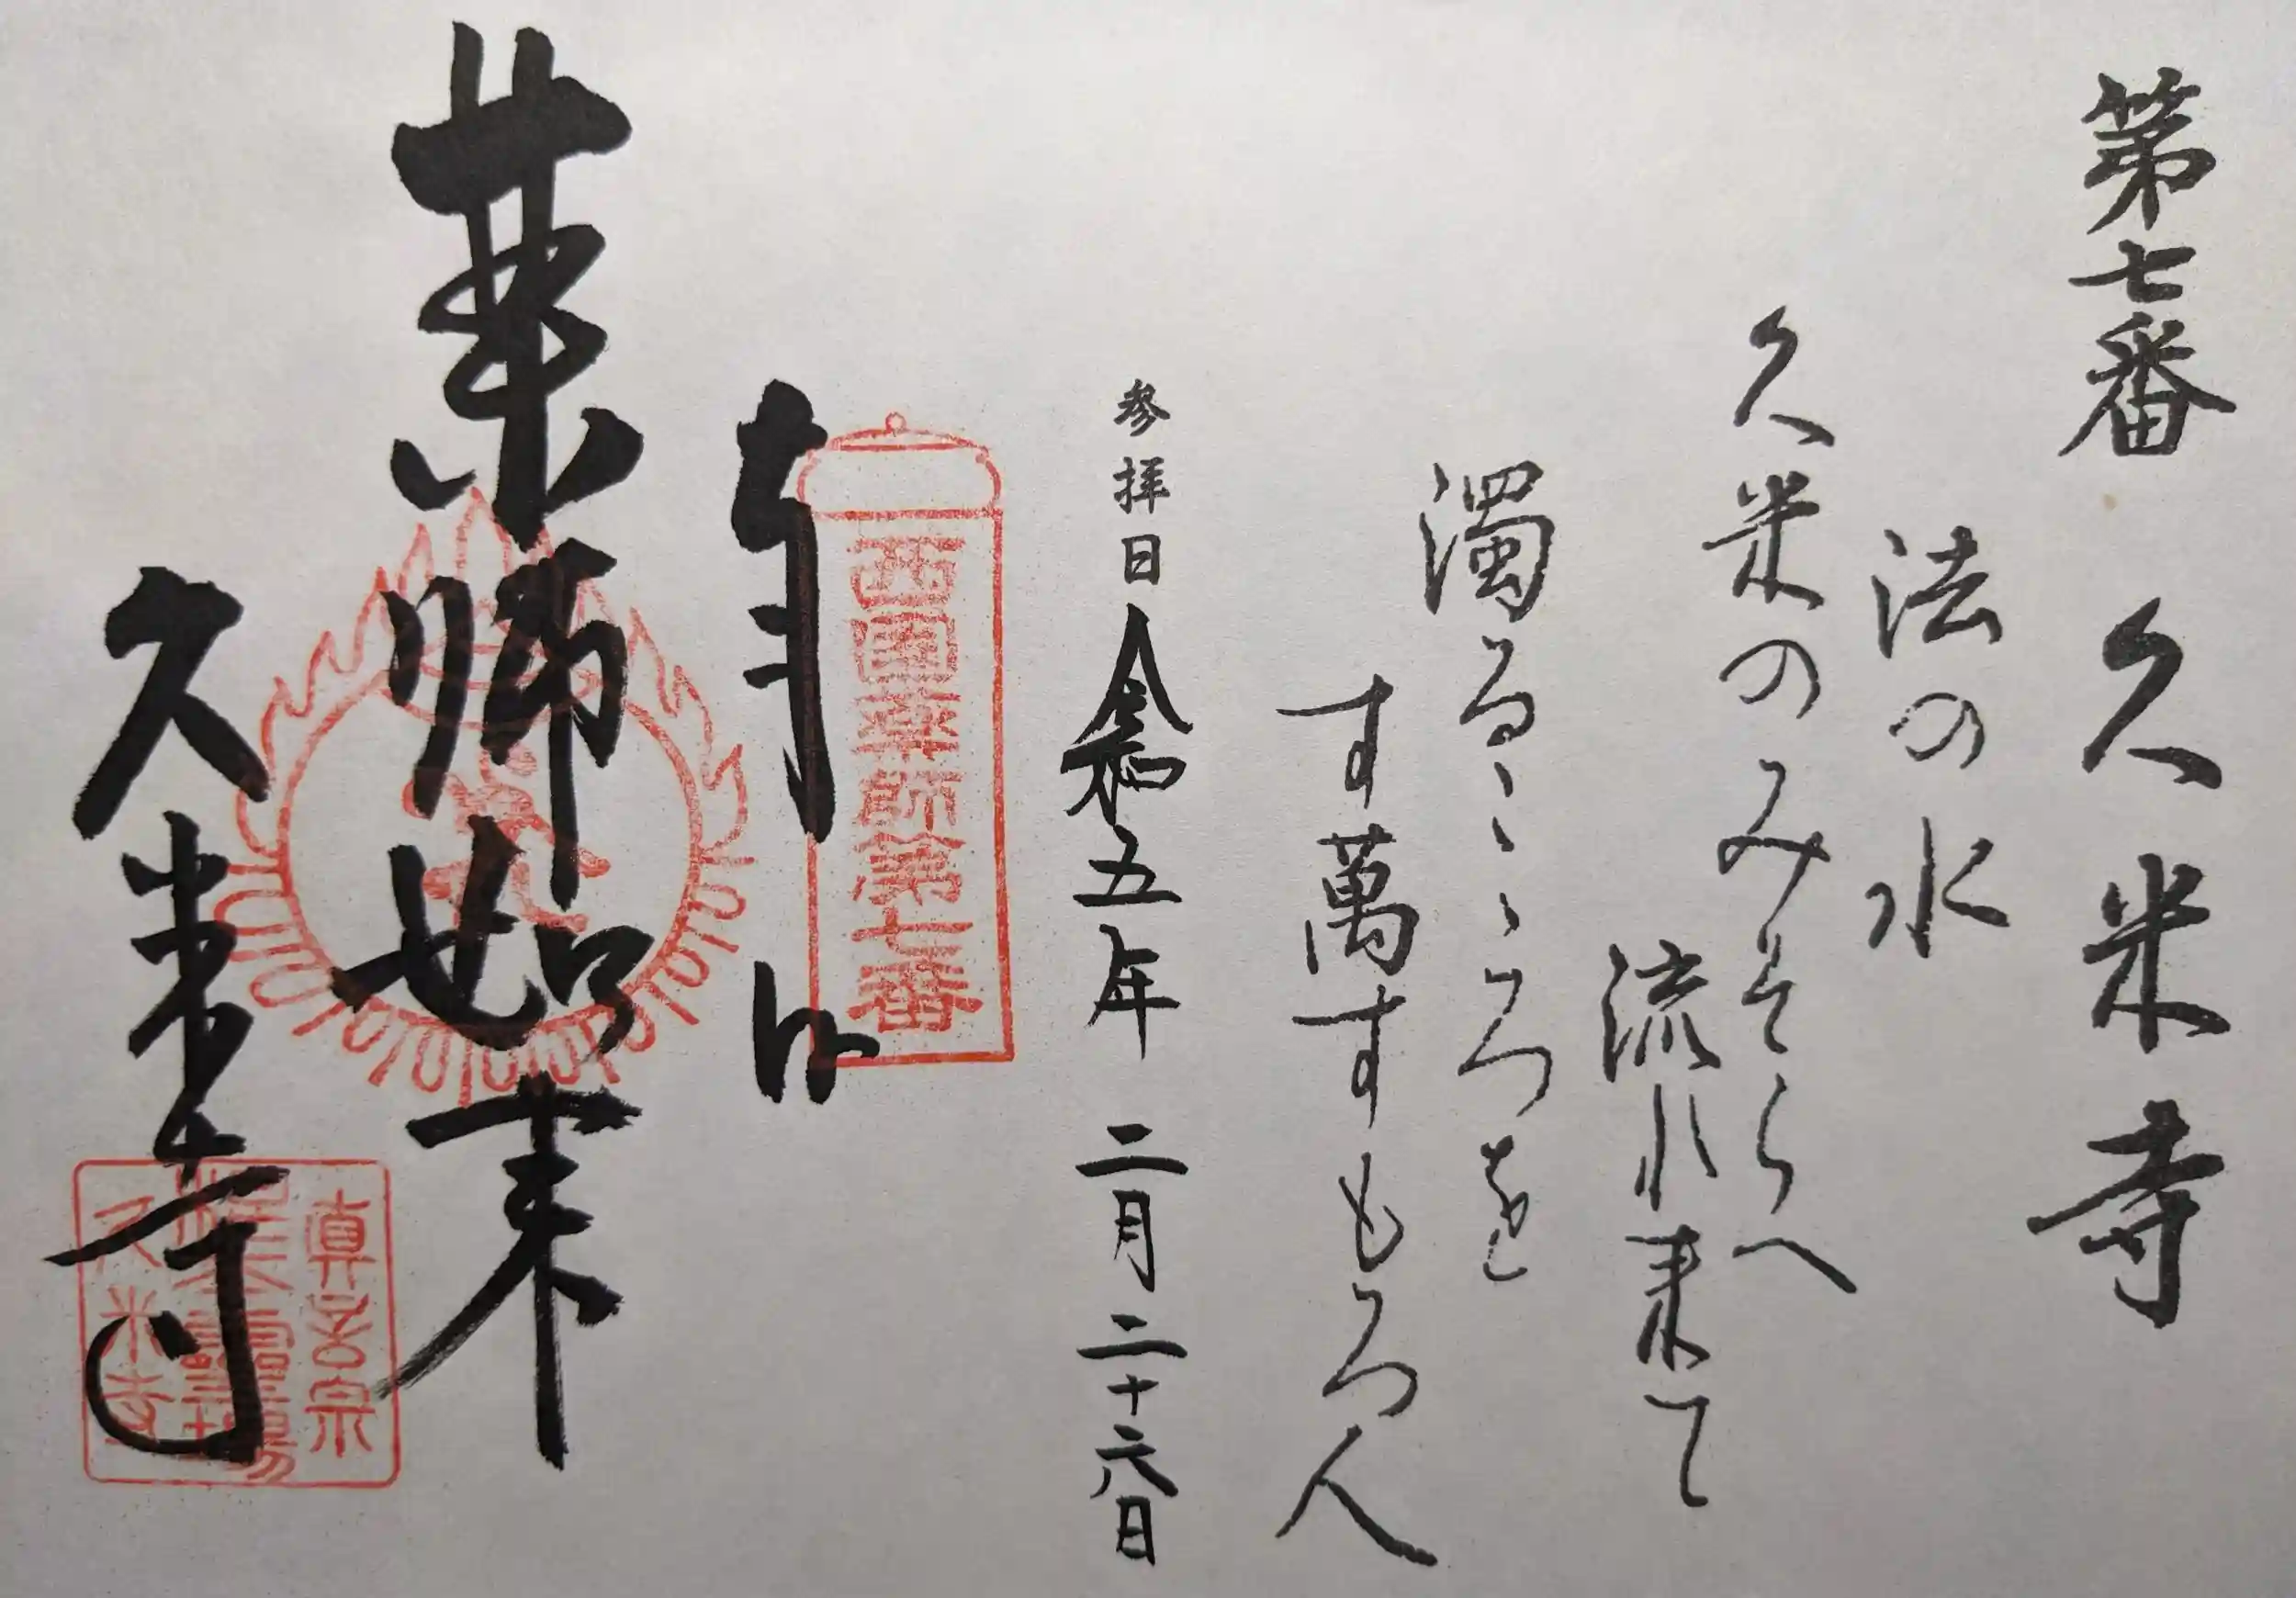 第七番 久米寺
法の水
久米のみそらへ
流れ来て
濁るこゝろを
す萬すもろ人
参拝日 令和五年 二月二十六日
西國薬師第七番
奉拝
薬師如来
久米寺
真言宗
久米寺